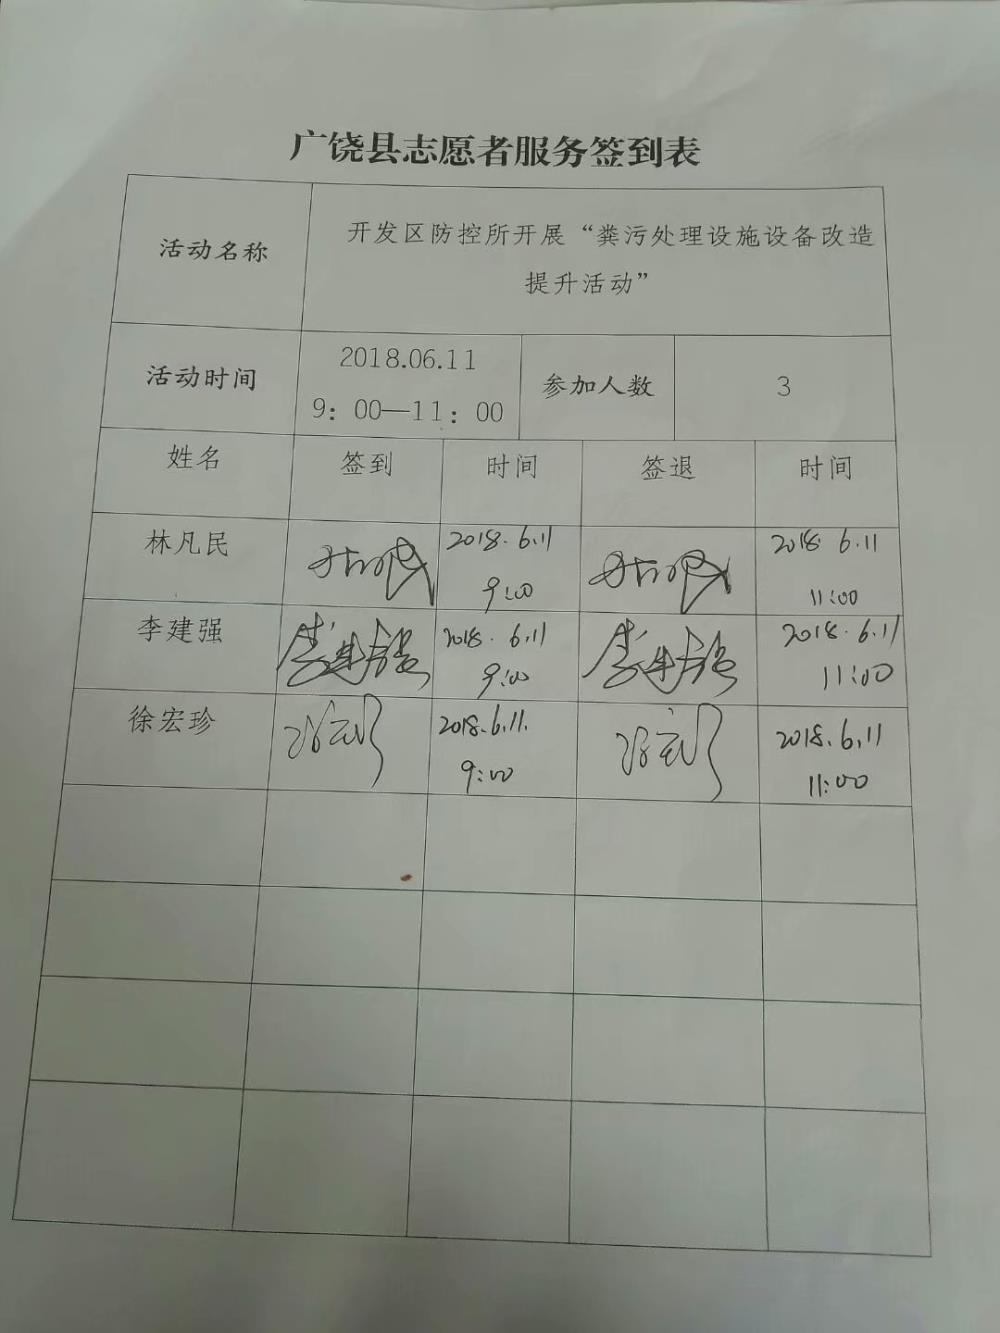 广饶县志愿者服务签到表
活动名称
开发区防控所开展“粪污处理设施设备改造
提升活动”
活动时间
2018.06.11
9：00—11：00
参加人数
3
姓名 签到 时间 签退 时间
林凡民
2018.6.11
9:00
2018 6.11
11:00
李建强 李建强
2018.6.11
9:00
李建强
2018.6.11
11:00
徐宏珍
2018.6.11.
9:00
2018.6.11
11:00